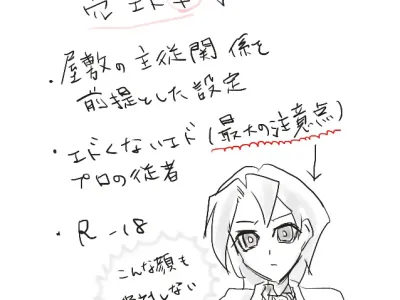 ・屋敷の主従関係を
前提とした設定
・エドくないエド(最大の注意点)
プロの従者
・R-18
こんな顔も